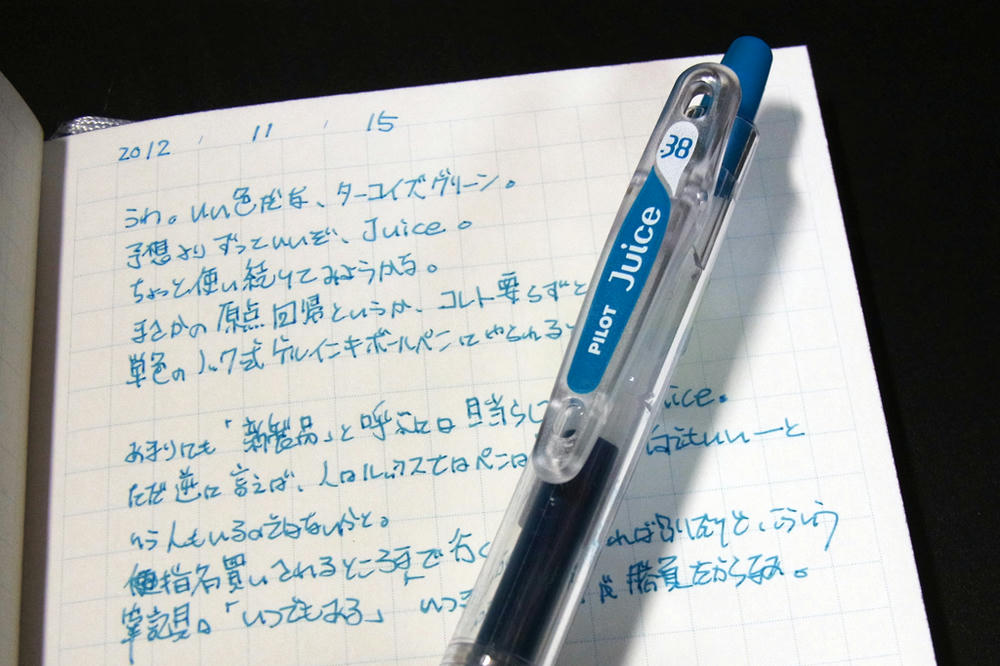 2012 , 11 , 15
うわ。いい色だな、ターコイズグリーン。
予想よりずっといいぞ、Juice。
ちょっと使い続けてみようかな。
まさかの原点回帰というか、コレト要らずと
単色のノック式ゲルインキボールペンにやられると
あまりにも「新製品」と呼ぶには目当らし juice。
ただ逆に言えば、人はルックスではペンは もいいーと
いう人もいるのではないかと。
指名買いされるところまで行く れば別だけど、こういう
筆記具は「いつでもある」 いつ 勝負だからなあ。
.38
Juice
PILOT